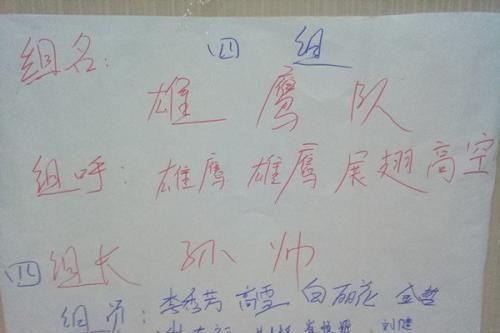 四 组
组名:
雄鹰队
组呼: 雄鹰 雄鹰 展翅高空
四组长 孙帅
组员: 李秀芳 高雪 白丽花 金哲
刘健